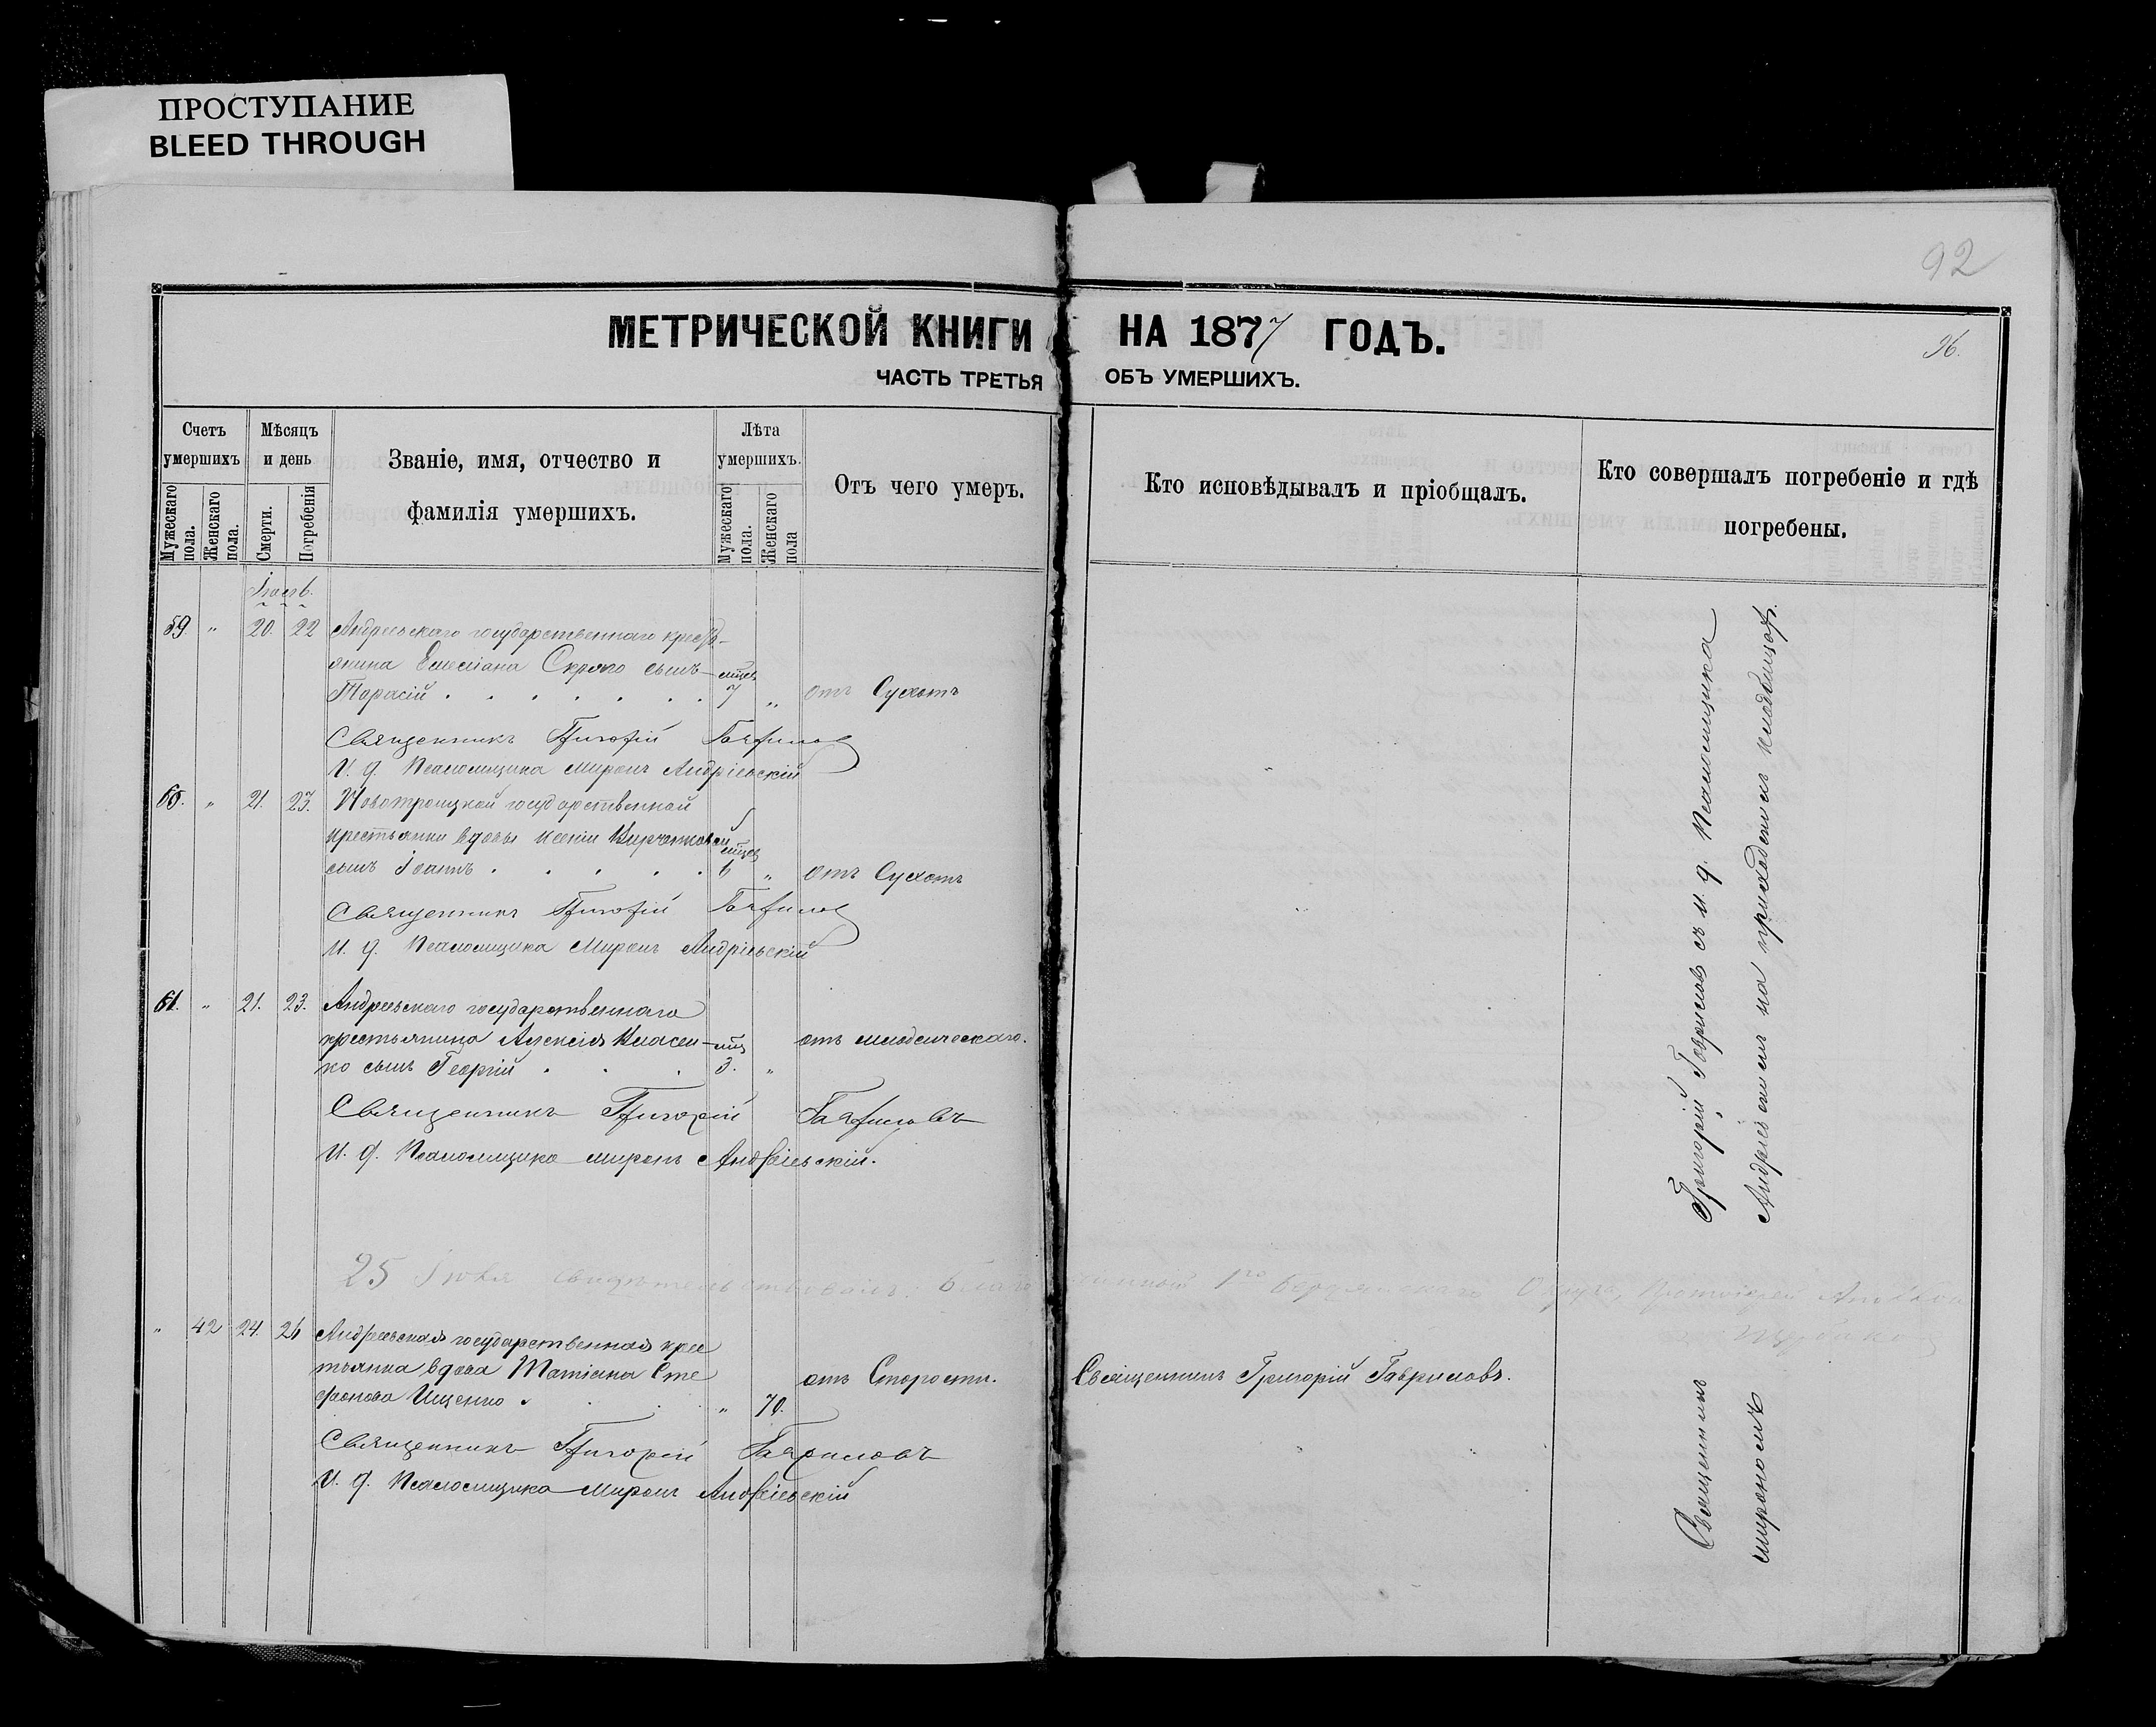 ПРОСТУПАНИЕ
BLEED THROUGH
92
МЕТРИЧЕСКОЙ КНИГИ НА 1877 ГОДЪ.
96.
ЧАСТЬ ТРЕТЬЯ ОБЪ УМЕРШИХЪ.
Счетъ умершихъ
Мужескаго пола.
Женскаго пола.
Мѣсяцъ и день
Смерти.
Погребенія
Званіе, имя, отчество и
фамилія умершихъ.
Лѣта умершихъ.
Мужескаго пола.
Женскаго пола
Отъ чего умеръ.
Кто исповѣдывалъ и пріобщалъ.
Кто совершалъ погребеніе и гдѣ
погребены.
59 " 20. 22 Андреевскаго государственнаго кресть-
янина Емеліана сынъ
Тарасій 7 " отъ Сухотъ
Священникъ Григорій Гавриловъ
И. д. Псаломщика Миронъ Андріевскій
60. " 21. 23. Новотроицкой государственной
крестьянки вдовы Ксеніи
сынъ Іоаннъ 6 " отъ Сухотъ
Священникъ Григорій Гавриловъ
И. д. Псаломщика Миронъ Андріевскій
61. " 21. 23. Андреевскаго государственнаго
крестьянина Алексія Власен-
ко сынъ Георгій 3. " отъ младенческаго.
Священникъ Григорій Гавриловъ
И. д. Псаломщика Миронъ Андріевскій.
25 Іюля свидѣтельствовалъ: Благочинный 1го Бердянскаго Округа, Протоіерей
" 42 24. 26 Андреевская государственная крес
тьянка вдова Татіана Сте
фанова Ищенко " 70. отъ Старости. Священникъ Григорій Гавриловъ.
Священникъ Григорій Гавриловъ
И. д. Псаломщика Миронъ Андріевскій
Священникъ Григорій Гавриловъ съ и. д. Псаломщика
Мирономъ Андріевскимъ на приходскомъ кладбищѣ.